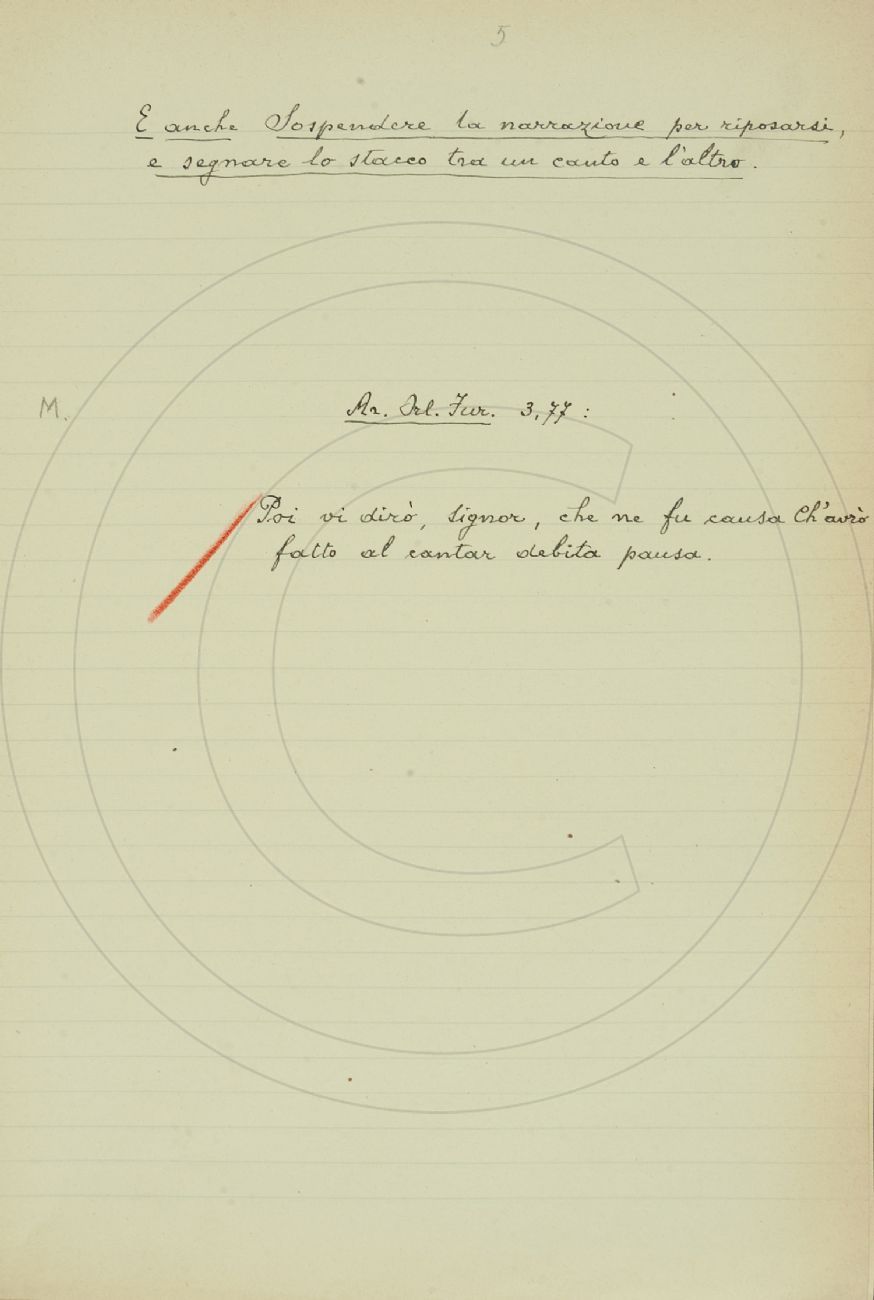 5
E anche Sospendere la narrazione per riposarsi,
e segnare lo stacco tra un canto e l'altro.
M. Ar. Orl. Fur. 3,77 :
Poi vi dirò, Signor, che ne fu causa Ch'avrò
fatto al cantar debita pausa.